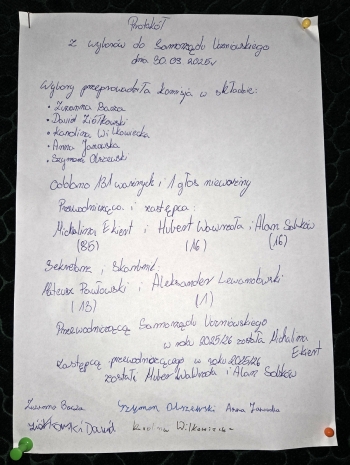 Protokół
z wyborów do Samorządu Uczniowskiego
dnia 30.09.2025r
Wybory przeprowadziła komisja w składzie:
• Zuzanna Bacza
• Dawid Ziółkowski
• Karolina Witkowiecka
• Anna Janowska
• Szymon Olszewski
Oddano 131 ważnych i 1 głos nieważny
Przewodnicząca i zastępca:
Michalina Ekiert i Hubert Wawrzota i Alan Sobków
(85) (16) (16)
Sekretarz i Skarbnik:
Mateusz Pawłowski i Aleksander Lewandowski
(13) (1)
Przewodniczącą Samorządu Uczniowskiego
w roku 2025/26 została Michalina
Ekiert
Zastępcą przewodniczącego w roku 2025/26
zostali Hubert i Alan Sobków
Zuzanna Bacza Szymon Olszewski Anna Janowska
Ziółkowski Dawid Karolina